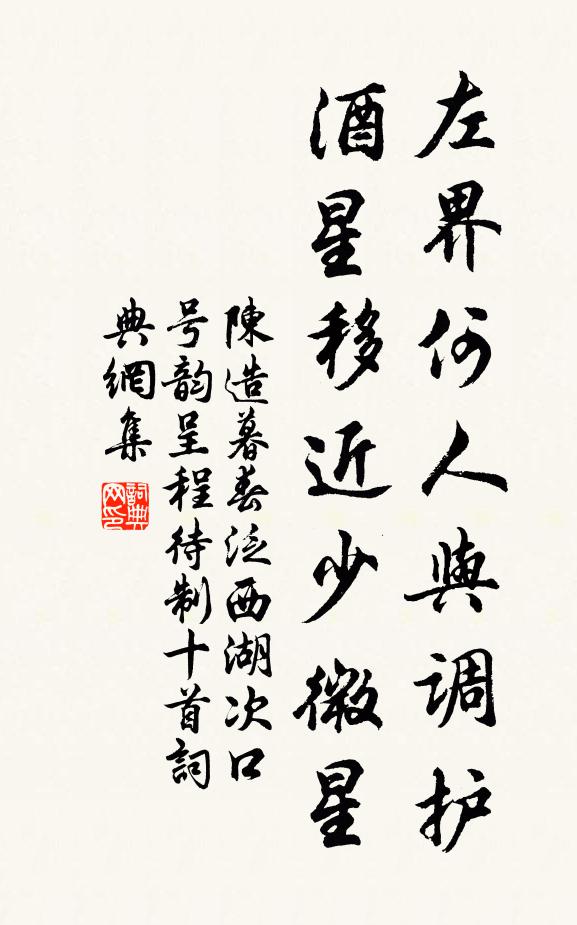 左界何人與调护
酒星移近少微星
陳造暮春泛西湖次口
号韵呈程待制十首詞
典網集
詞典网印